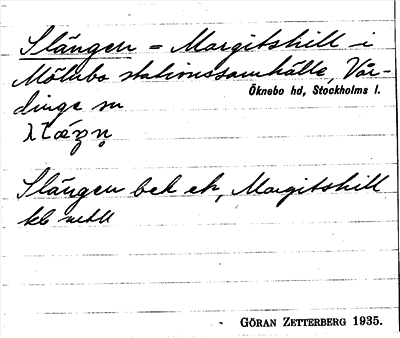 Slängen = Margitshill i
Mölnbo stationssamhälle, Vår-
dinge sn
Öknebo hd, Stockholms l.
Slängen bek ek, Margitshill
GÖRAN ZETTERBERG 1935.